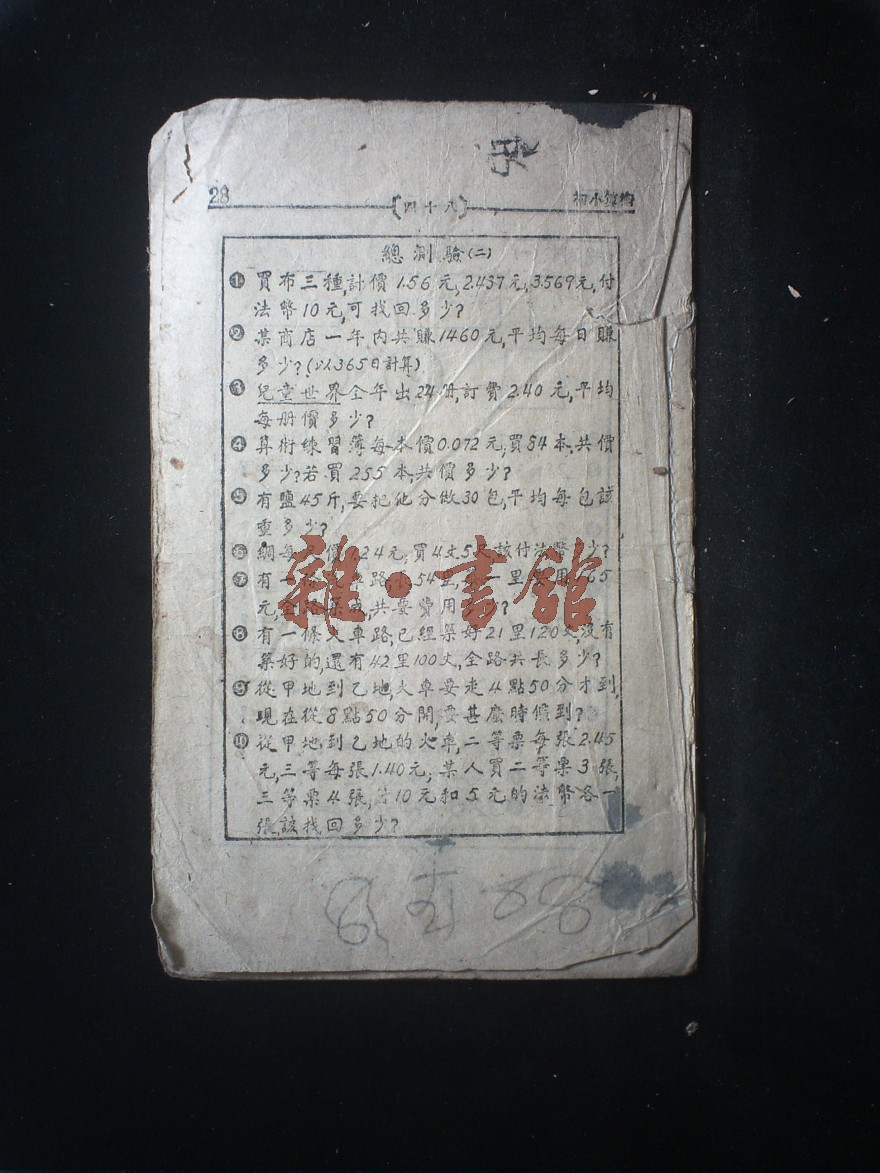 28
〔四十八〕
總測驗(二)
❶ 買布三種,計價1.56元,2.437元,3.569元,付
法幣10元,可找回多少?
❷ 某商店一年內共賺1460元,平均每日賺
多少?(以365日計算)
❸ 兒童世界全年出24册,訂費2.40元,平均
每册價多少?
❹ 算術練習簿每本價0.072元,買54本,共價
多少?若買255本,共價多少?
❺ 有鹽45斤,要把他分做30包,平均每包該
重多少?
❻ 綢每 價1.24元,買4丈5尺該付法幣 少?
❼ 有一條 車路,長54里, 一里要用 65
元,全路築成,共要費用 ?
❽ 有一條火車路,已經築好21里120丈,沒有
築好的,還有42里100丈,全路共長多少?
❾ 從甲地到乙地,火車要走4點50分才到,
現在從8點50分開,要甚麽時候到?
❿ 從甲地到乙地的火車,二等票每張2.45
元,三等每張1.40元;某人買二等票3張,
三等票4張,付10元和5元的法幣各一
張,該找回多少?
雜·書館